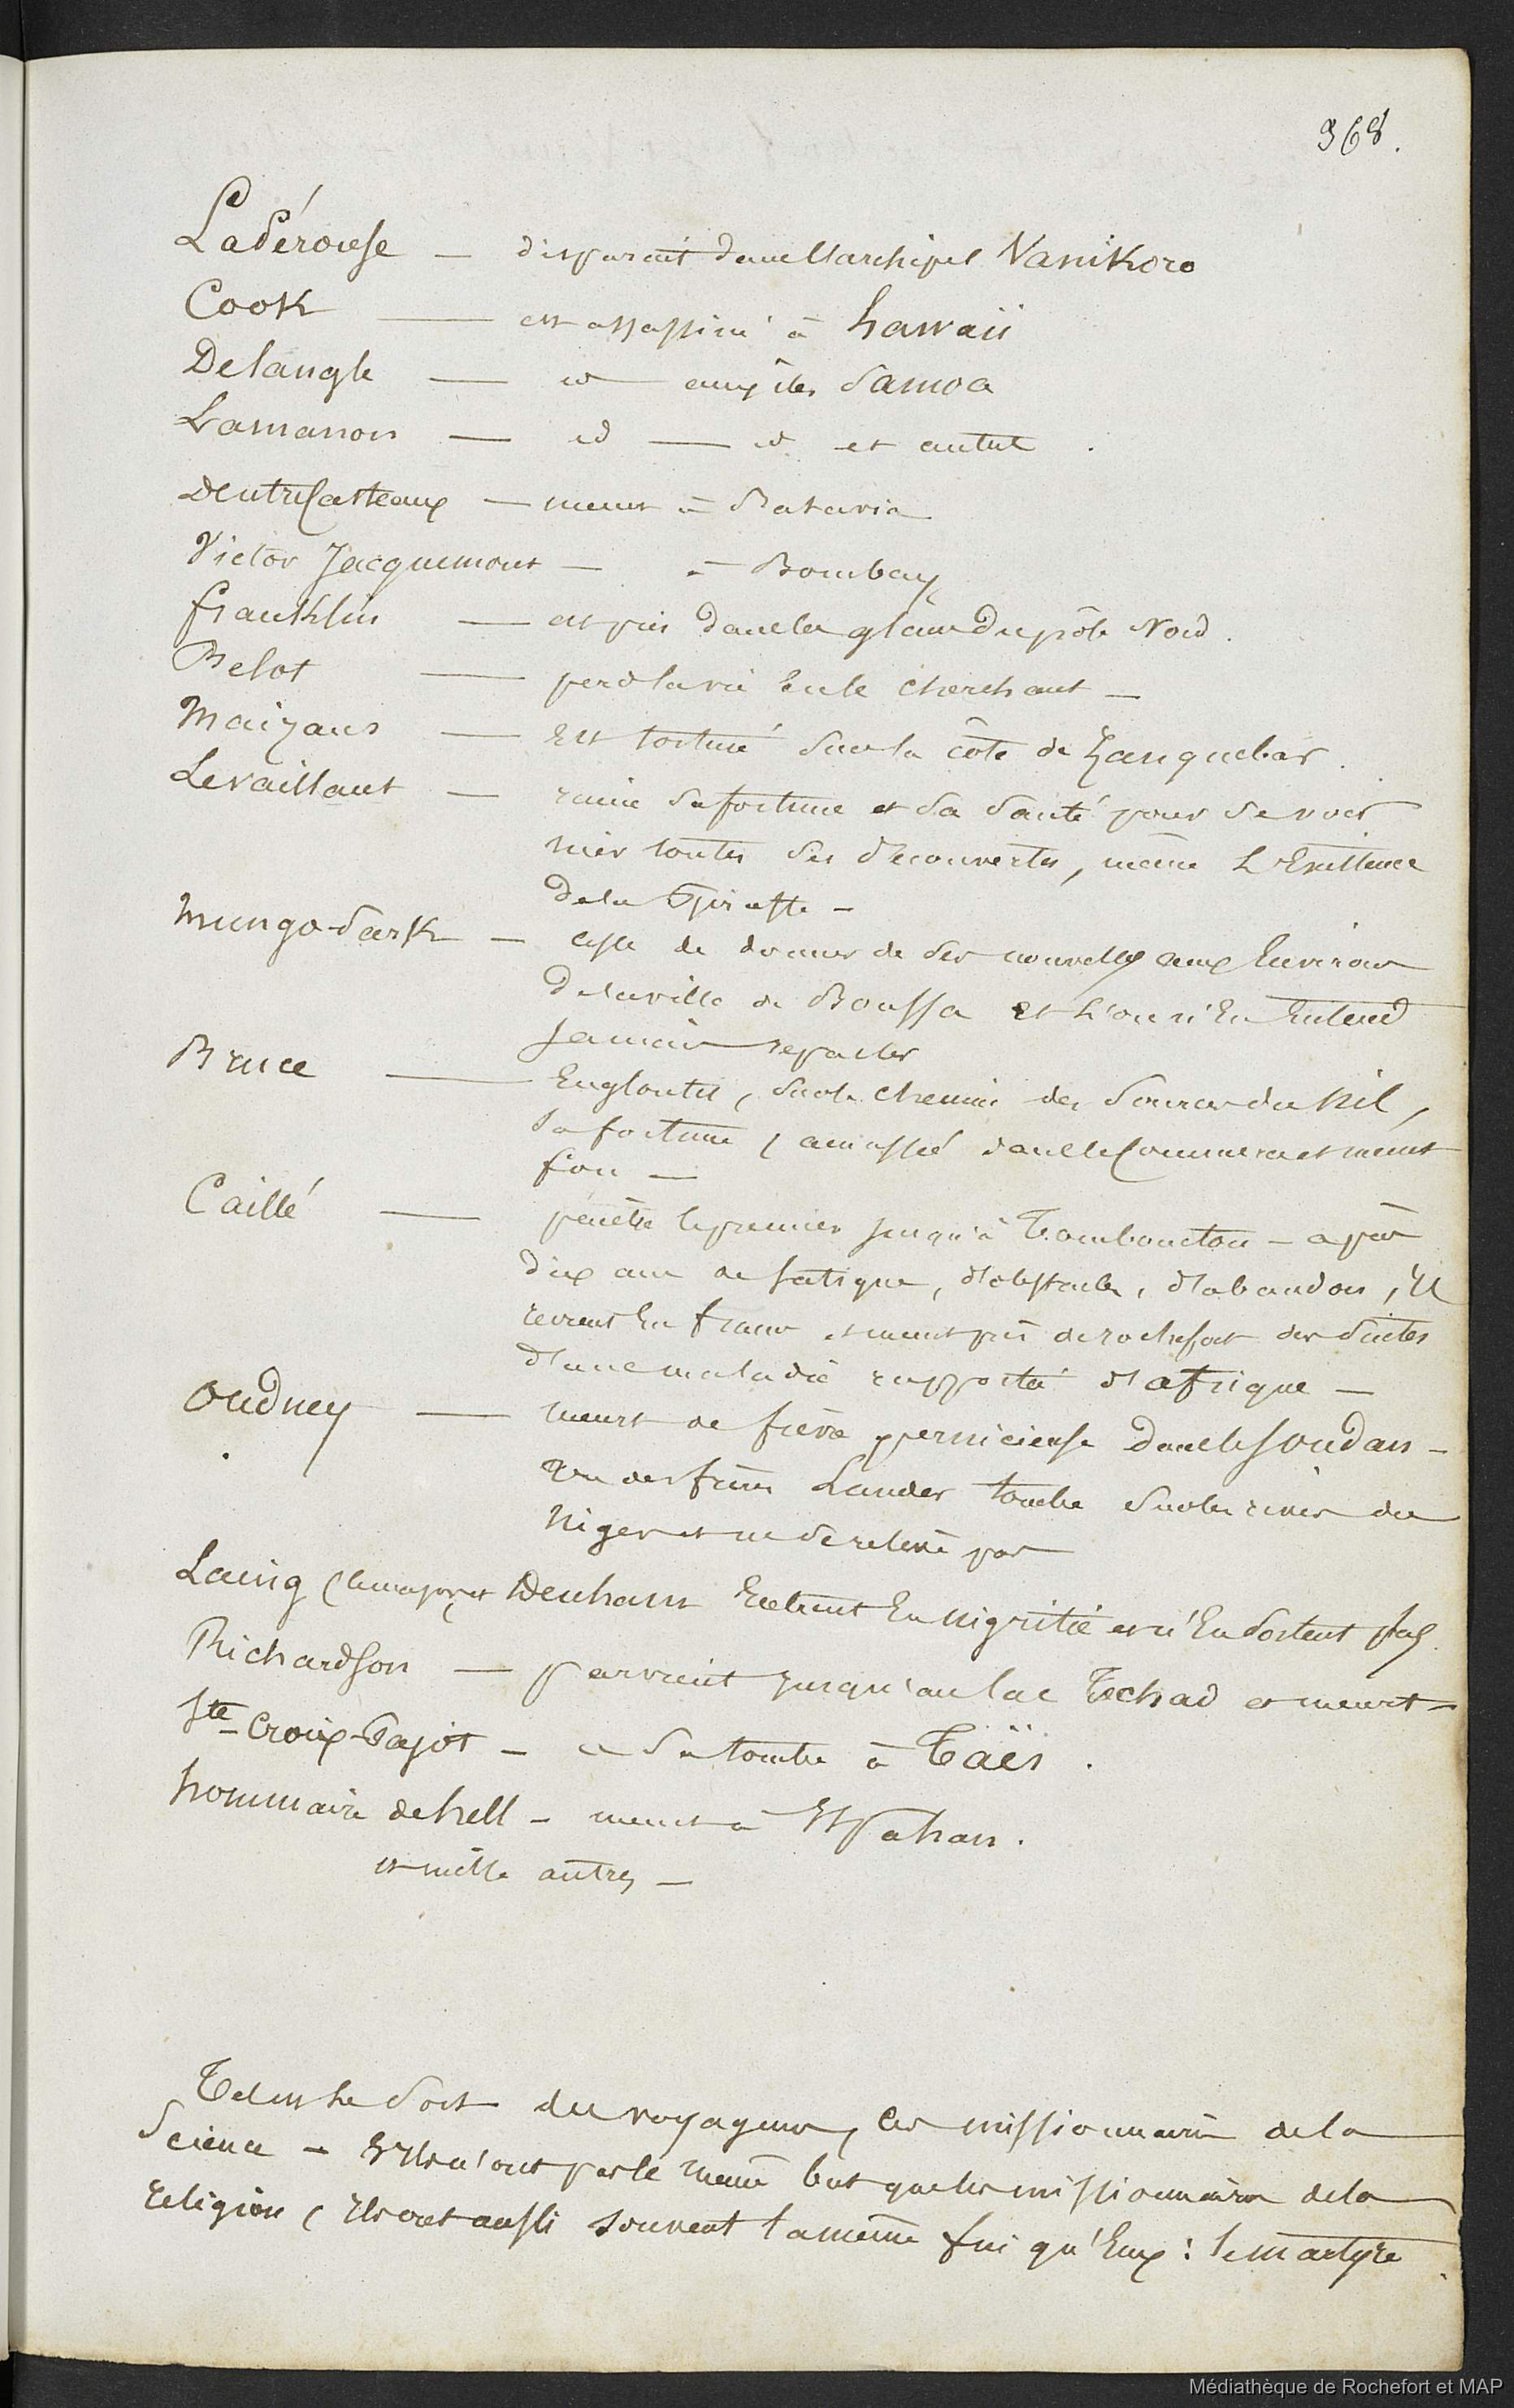 368.
LaPérouse — disparait dans l'archipel Vanikoro
Cook — est assassiné à hawaii
Delangle — id — aux îles Samoa
Lamanon — id — id et
Dentrecasteaux — meurt à Batavia
Victor Jacquemont — à Bombay
franklin — est pris dans les glaces du pôle Nord.
Belot — perd la vie en le cherchant —
Maizans — est torturé sur la côte de Zanguebar.
Levaillant — ruine sa fortune et sa santé pour se voir
nier toutes ses découvertes, même l'existence
de la Giraffe —
Mungo-Park — cesse de donner de ses nouvelles aux environs
de la ville de Boussa et l'on n'en entend
jamais reparler
Bruce — Engloutit, sur le chemin des sources du Nil,
sa fortune, amassée dans le Commerce et meurt
fou —
Caillé — pénètre le premier jusqu'à Tombouctou — après
dix ans de fatigue, d'obstacles, d'abandon, il
revient en france et meurt près de rochefort des suites
d'une maladie rapportée d'afrique —
Oudney — meurt de fièvre pernicieuse dans le soudan —
un des frères Lander tombe sur les rives du
Niger et ne se relève pas
Laing (le major) et Denham Entrent En nigritie et n'En sortent pas.
Richardson — parvient jusqu'au lac Tchad et meurt —
Ste Croix-Pajot — a sa tombe à Taës.
hommaire de hell — meurt à Ispahan.
et mille autres —
Tel est le sort des voyageurs, ces missionnaires de la
Science — S'ils n'ont pas le même but que les missionnaires de la
religion, ils ont aussi souvent la même fin qu'Eux : le martyre.
Médiathèque de Rochefort et MAP